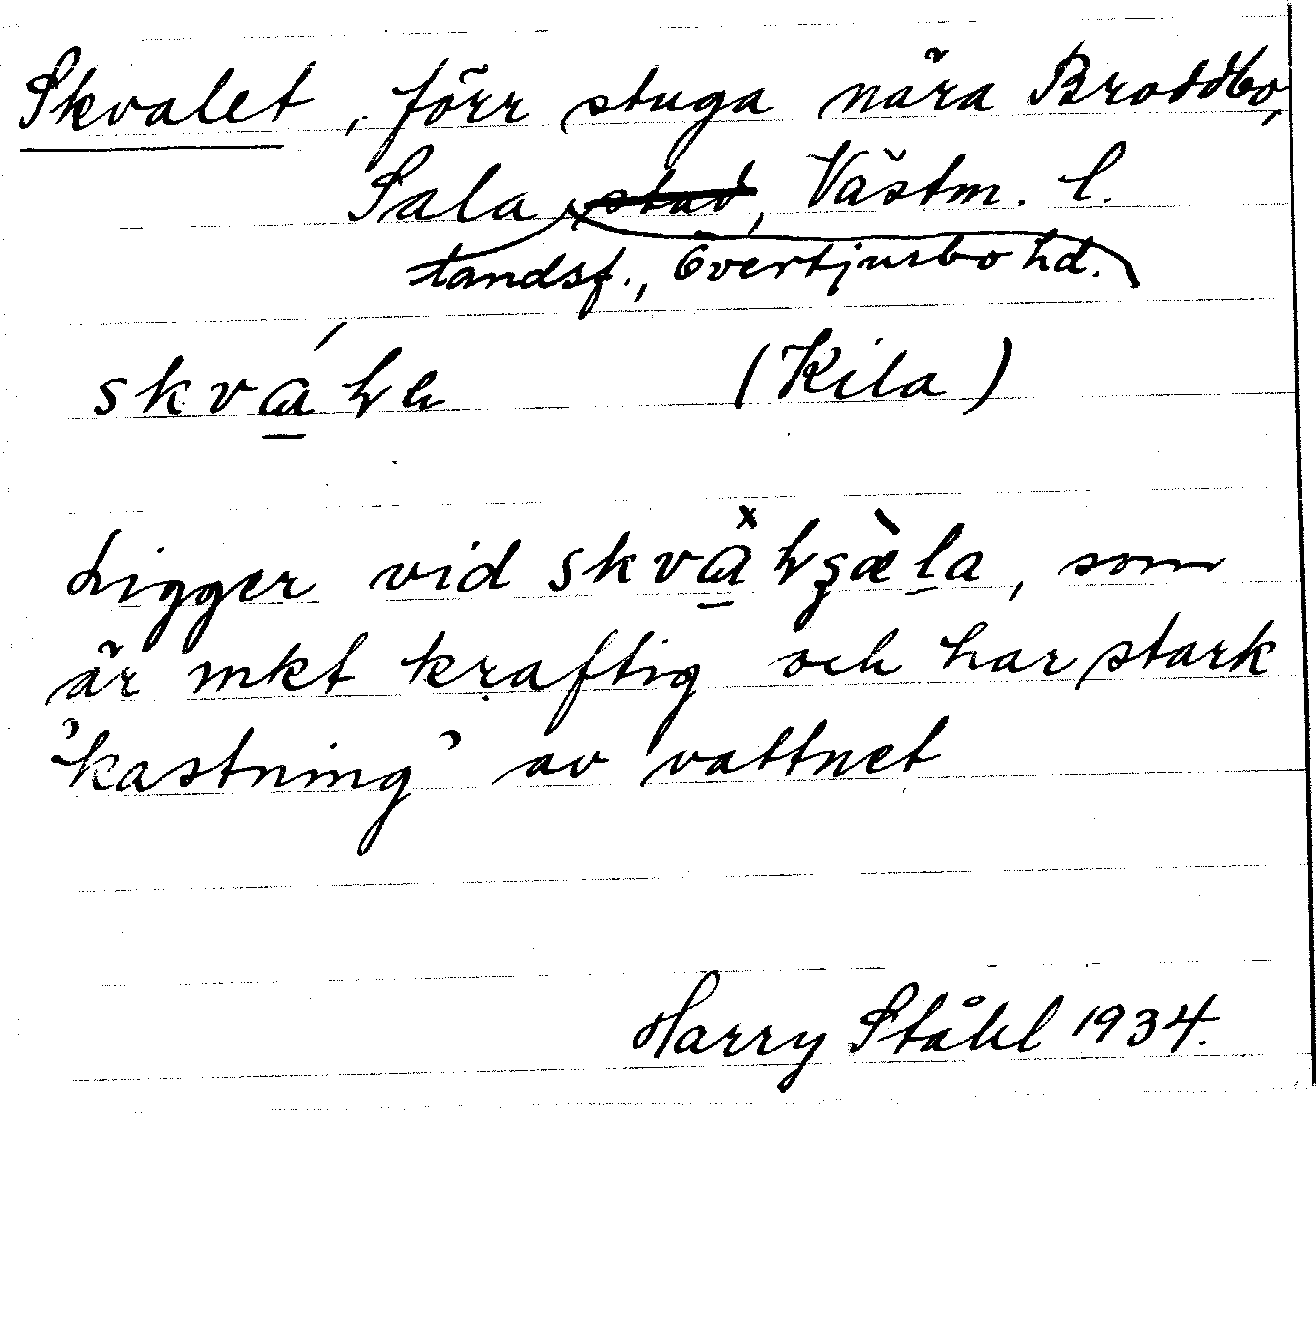 Skvalet, förr stuga nära Broddbo,
Sala stad, Västm. l.
landsf., Övertjurbo hd.
(Kila)
Ligger vid som
är mkt kraftig och har stark
'kastning' av vattnet
Harry Ståhl 1934.